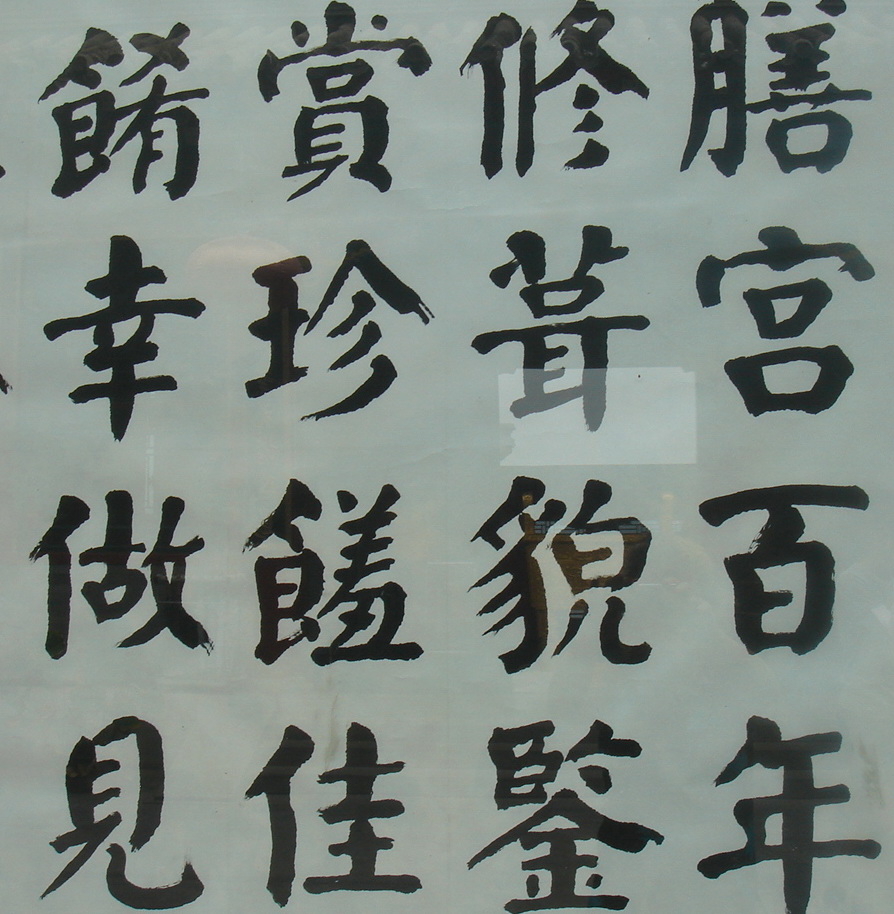 膳宫百年
修葺貌鑒
賞珍饈佳
餚幸做見